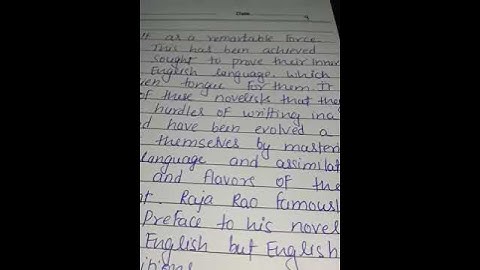 Date
as a remarkable force
This has been achieved
sought to prove their inn
English language, which
tongue for them. It
of these novelists that the
hurdles of writting in a
have been evolved a
themselves by master
language and assimilat
and flavors of the
Raja Rao famousl
Preface to his novel
English but English